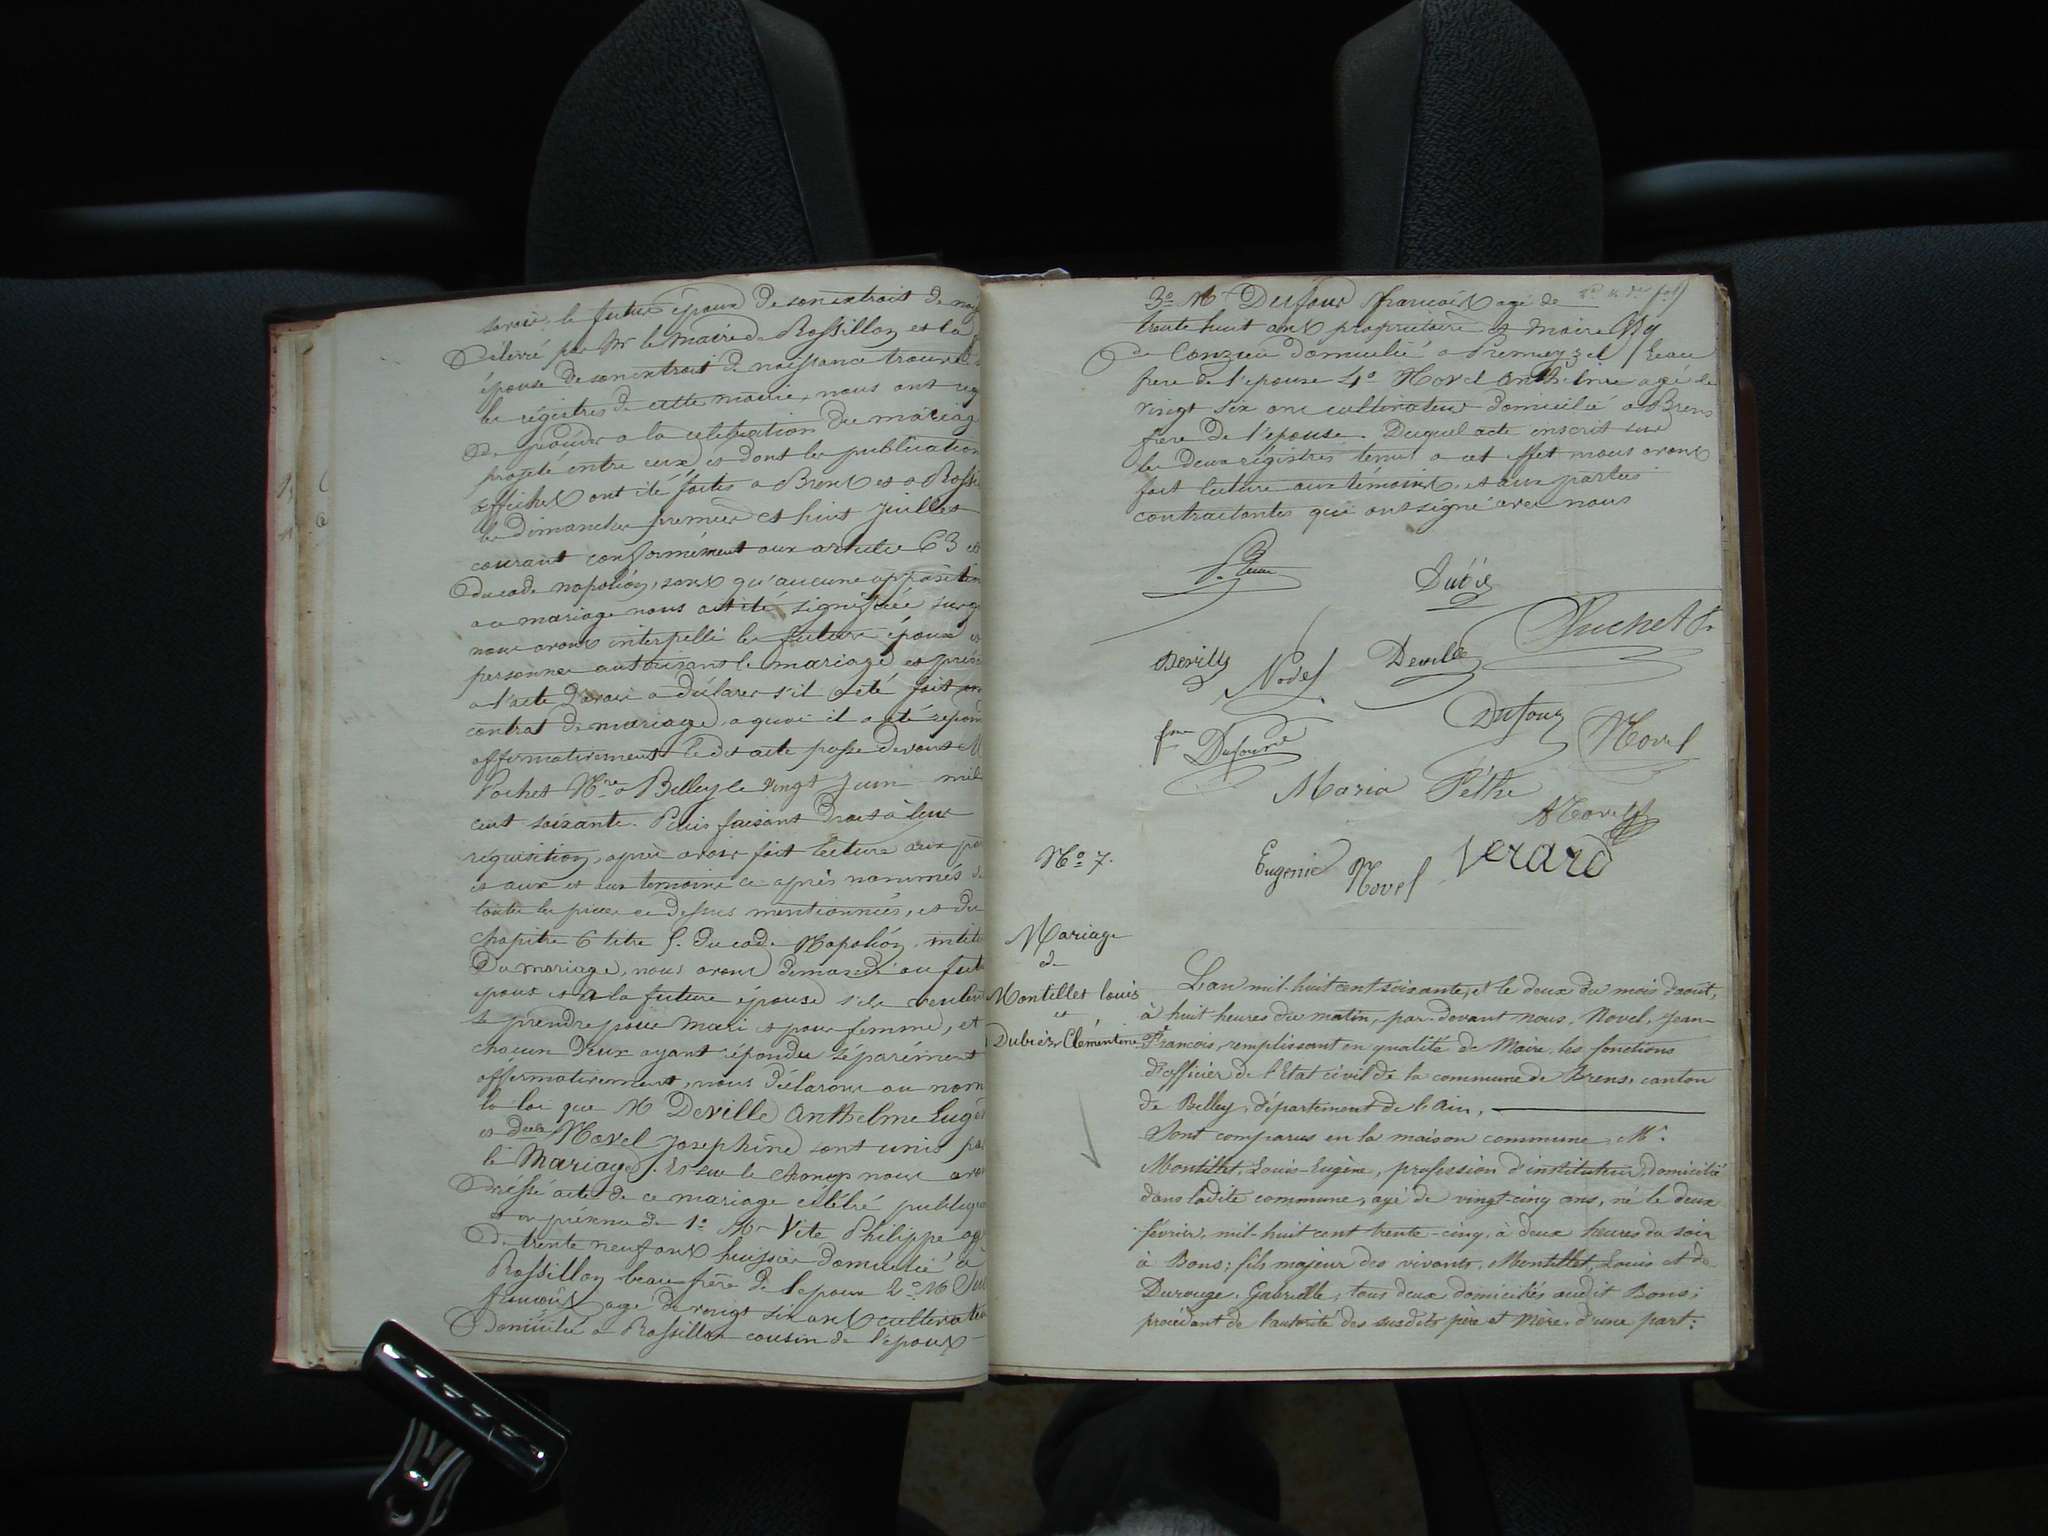 savoir, le futur époux de son extrait de nais
délivré par Mr le maire de Rossillon et la
épouse de son extrait de naissance trouvé
les régistres de cette mairie, nous ont req
de procéder a la célébration du mariag
projeté entre eux et dont les publication
affiches ont été faites a Brens et a Rossi
les dimanches premier et huit juillet
courant conformément aux articles 63 et
du code napoléon, sans qu'aucune opposition
au mariage nous ait été signifiée surq
nous avons interpellé les futurs époux et
personnes autorisant le mariage et prése
a l'acte d'avoir a déclarer s'il a été fait un
contrat de mariage, a quoi il a été répond
affirmativement le dit acte passé devant M
Pochet Nre a Belley le vingt Juin mil
cent soixante. Puis faisant droit à leur
réquisition, après avoir fait lecture aux pa
et aux et aux temoins ci après nommés de
toutes les pièces ci dessus mentionnées, et du
chapitre 6 titre 5. du code Napoléon, intit
Du mariage, nous avons demandé au futu
époux et a la future épouse s'ils veulent
se prendre pour mari et pour femme, et
chacun deux ayant répondu séparément
affirmativement, nous déclarons au nom
la loi que M Deville Anthelme Eugè
et delle Novel Josephine sont unis par
le Mariage. Et sur le champ nous avon
dressé acte de ce mariage célébré publique
en présence de 1o Mr Vite Philippe ag
de trente neuf ans huissier domicilié à
Rossillon beau frère de l'époux 2o M
françois agé de vingt six ans cultivateu
domicilié a Rossillon cousin de l'époux
3o Mr Dufour françois agé de
trente huit ans propriétaire et maire
de Conzieu domicilié a Premeyzel beau
frere de l'epouse 4o Novel Anthelme agé de
vingt six ans cultivateur domicilié a Brens
frere de l'épouse. Duquel acte inscrit sur
les deux régistres tenus a cet effet nous avons
fait lecture aux témoins, et aux parties
contractantes qui ont signé avec nous
Dubiez
Suchet
Deville Novel Deville
Dufour Novel
fme Dufour
Maria Péthe
A Novel
Eugenie Novel Verard
No 7.
Mariage
de
Montillet Louis
et
Dubiez Clémentine
L'an mil-huit cent-soixante, et le deux du mois d'aout,
à huit heures du matin, par-devant nous, Novel, Jean-
François, remplissant en qualité de Maire, les fonctions
d'officier de l'Etat civil de la commune de Brens, canton
de Belley, département de l'Ain,
Sont comparus en la maison commune, Mr.
Montillet, Louis-Eugène, profession d'instituteur, domicilié
dans ladite commune, agé de vingt-cinq ans, né le deux
février, mil-huit cent trente-cinq, à deux heures du soir
à Bons; fils majeur des vivants, Montillet, Louis et de
Durouge, Gabrielle, tous deux domiciliés audit Bons;
procédant de l'autorité des susdits père et mère, d'une part: